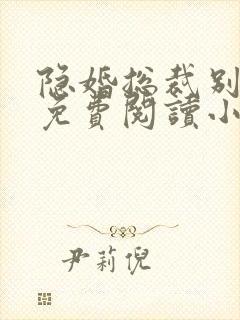 隐婚总裁别
免费阅读小
尹莉倪